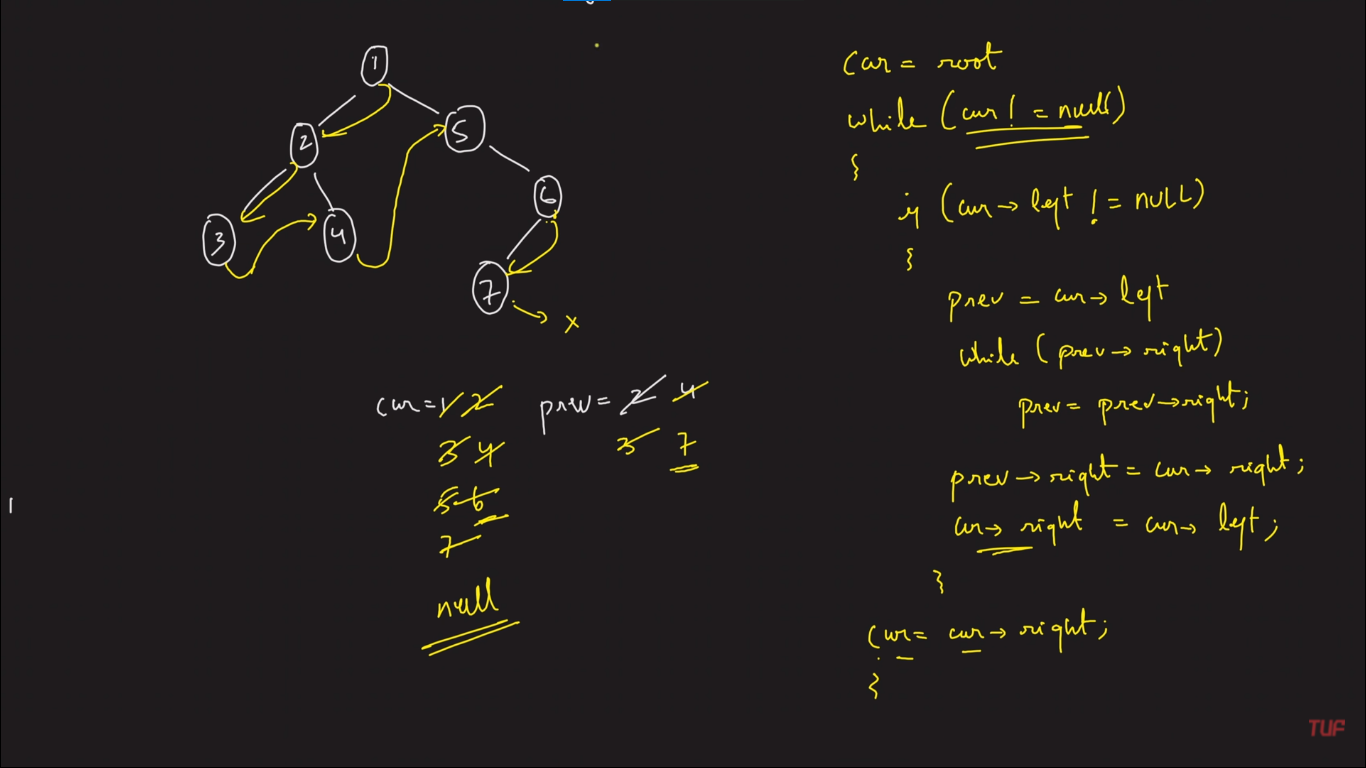 1
2
5
3
4
6
7
x
cur = 1 2
3 4
5 6
7
null
prev = 2 4
3 7
cur = root
while (cur != null)
{
if (cur → left != NULL)
{
prev = cur → left
while (prev → right)
prev = prev → right;
prev → right = cur → right;
cur → right = cur → left;
}
cur = cur → right;
}
TUF